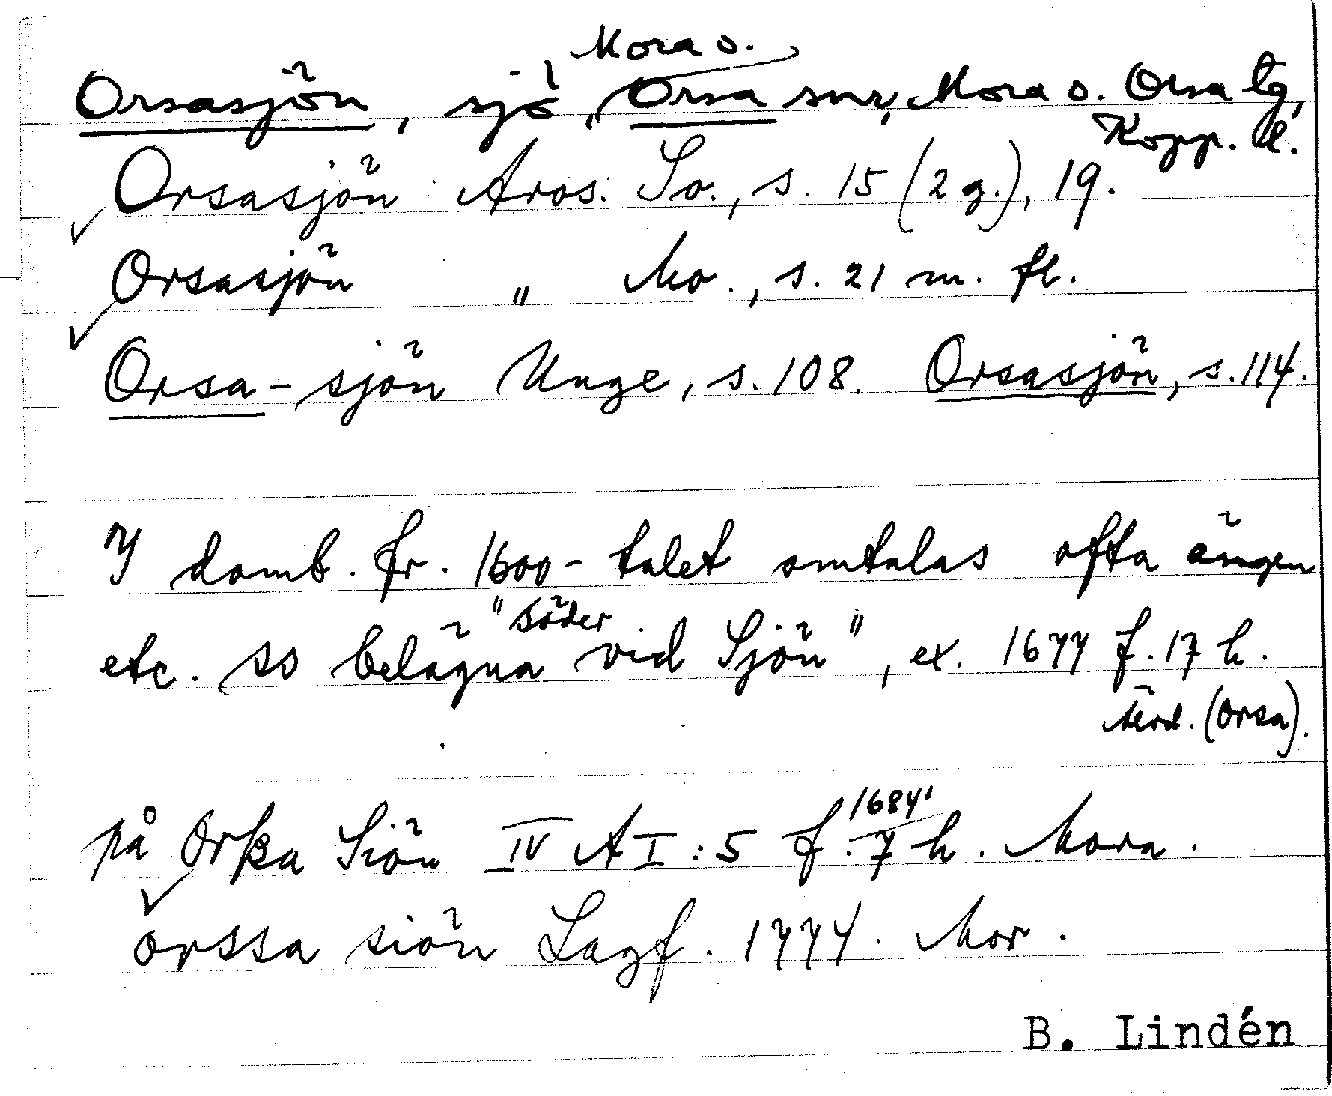 Mora o.
Orsasjön, sjö, Orsa snr, Mora o. Orsa tg,
Kopp. l.
Orsasjön Aros. So., s. 15 (2 g.), 19.
Orsasjön " Mo., s. 21 m. fl.
Orsa-sjön Unge, s. 108. Orsasjön, s. 114.
I domb. fr. 1600-talet omtalas ofta ängen
etc. ss belägna "söder vid Sjön", ex. 1677 f. 17 h.
(Orsa).
på Orßa Siön IV A I:5 f. 7 h. 1684 Mora.
orssa siön Lagf. 1774. Mor.
B. Lindén